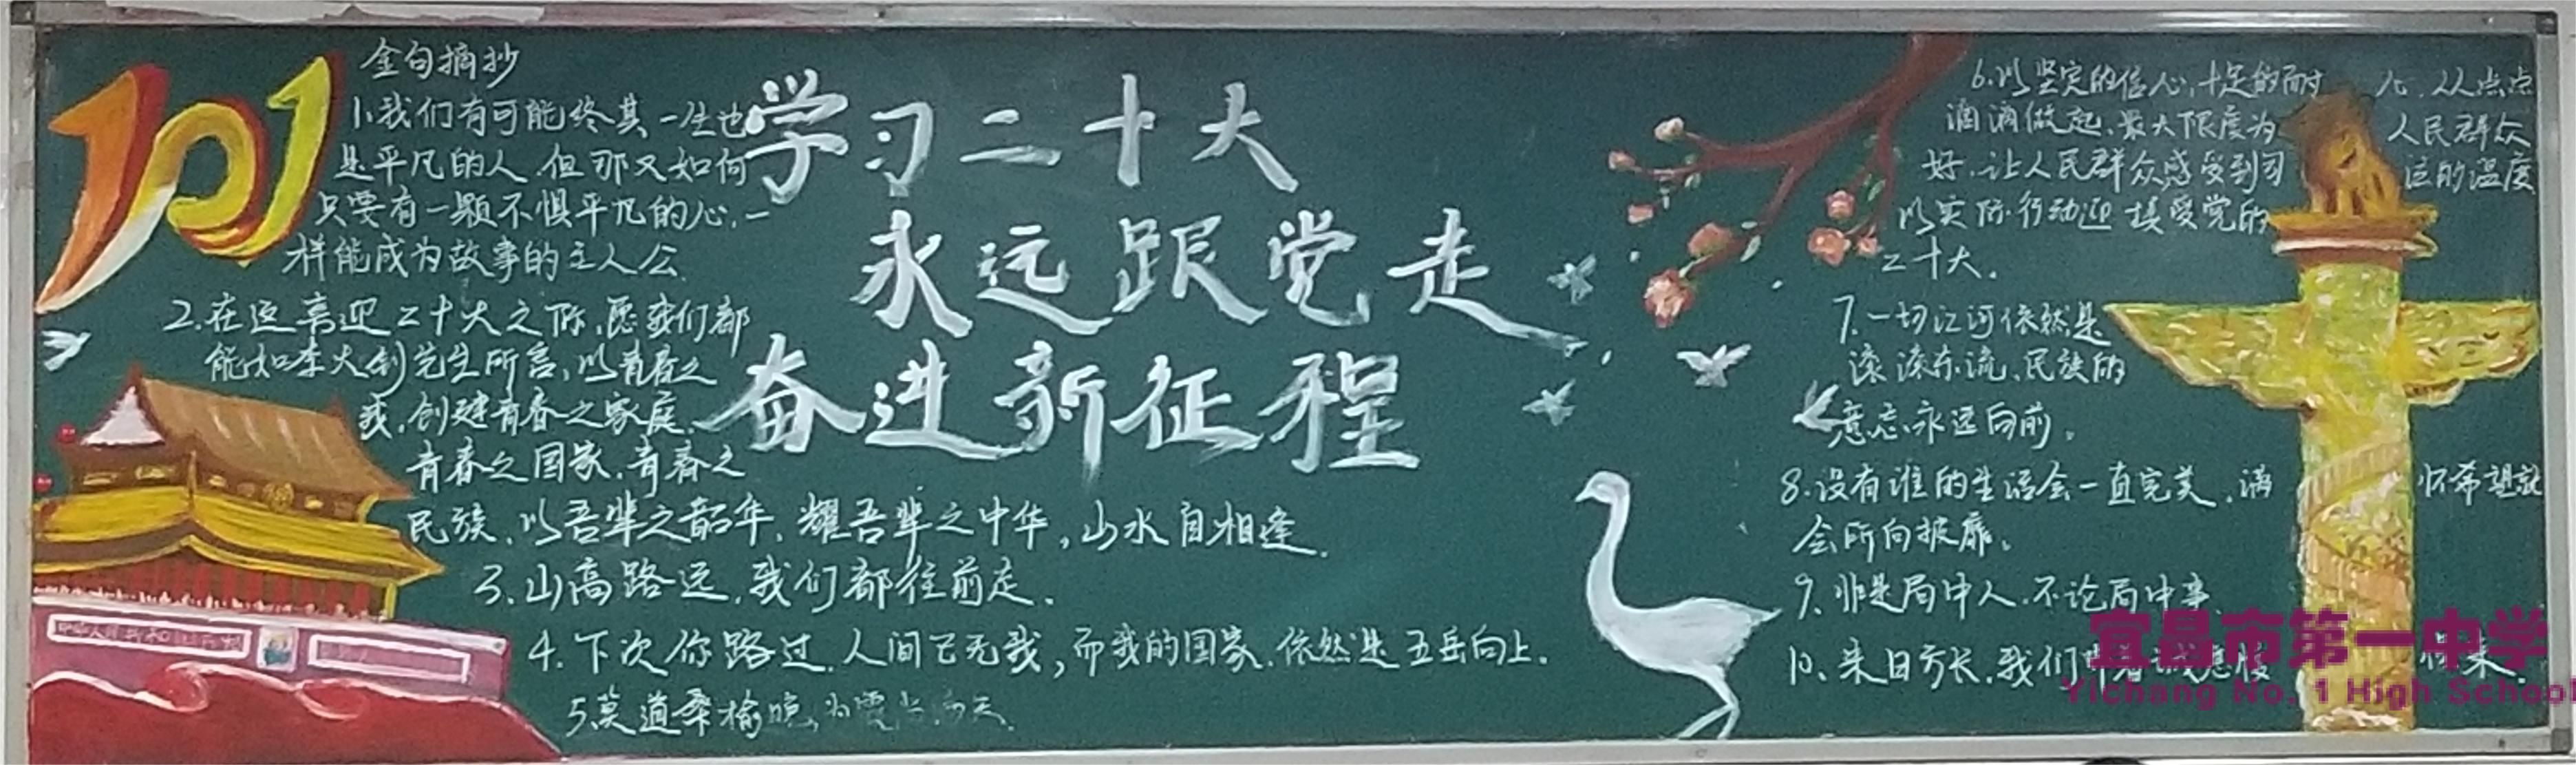 101
金句摘抄
1.我们有可能终其一生也
是平凡的人.但那又如何
只要有一颗不惧平凡的心,一
样能成为故事的主人公.
2.在这喜迎二十大之际,愿我们都
能如李大钊先生所言,以青春之
我,创建青春之家庭,
青春之国家,青春之
民族,以吾辈之韶华,耀吾辈之中华,山水自相逢.
3.山高路远,我们都往前走.
4.下次你路过,人间已无我,而我的国家,依然是五岳向上.
5.莫道桑榆晚,为霞尚
学习二十大
永远跟党走
奋进新征程
6.以坚定的信心,十足的耐 心.从点点
滴滴做起,最大限度为 人民群众
好,让人民群众感受到司 法的温度
以实际行动迎接受党的
二十大.
7.一切江河依然是
滚滚东流,民族的
意志永远向前。
8.没有谁的生活会一直完美,满 怀希望就
会所向披靡。
9.非是局中人.不论局中事.
10.来日方长,我们 来.
中华人民共和国万岁
宜昌市第一中学
Yichang No. 1 High School